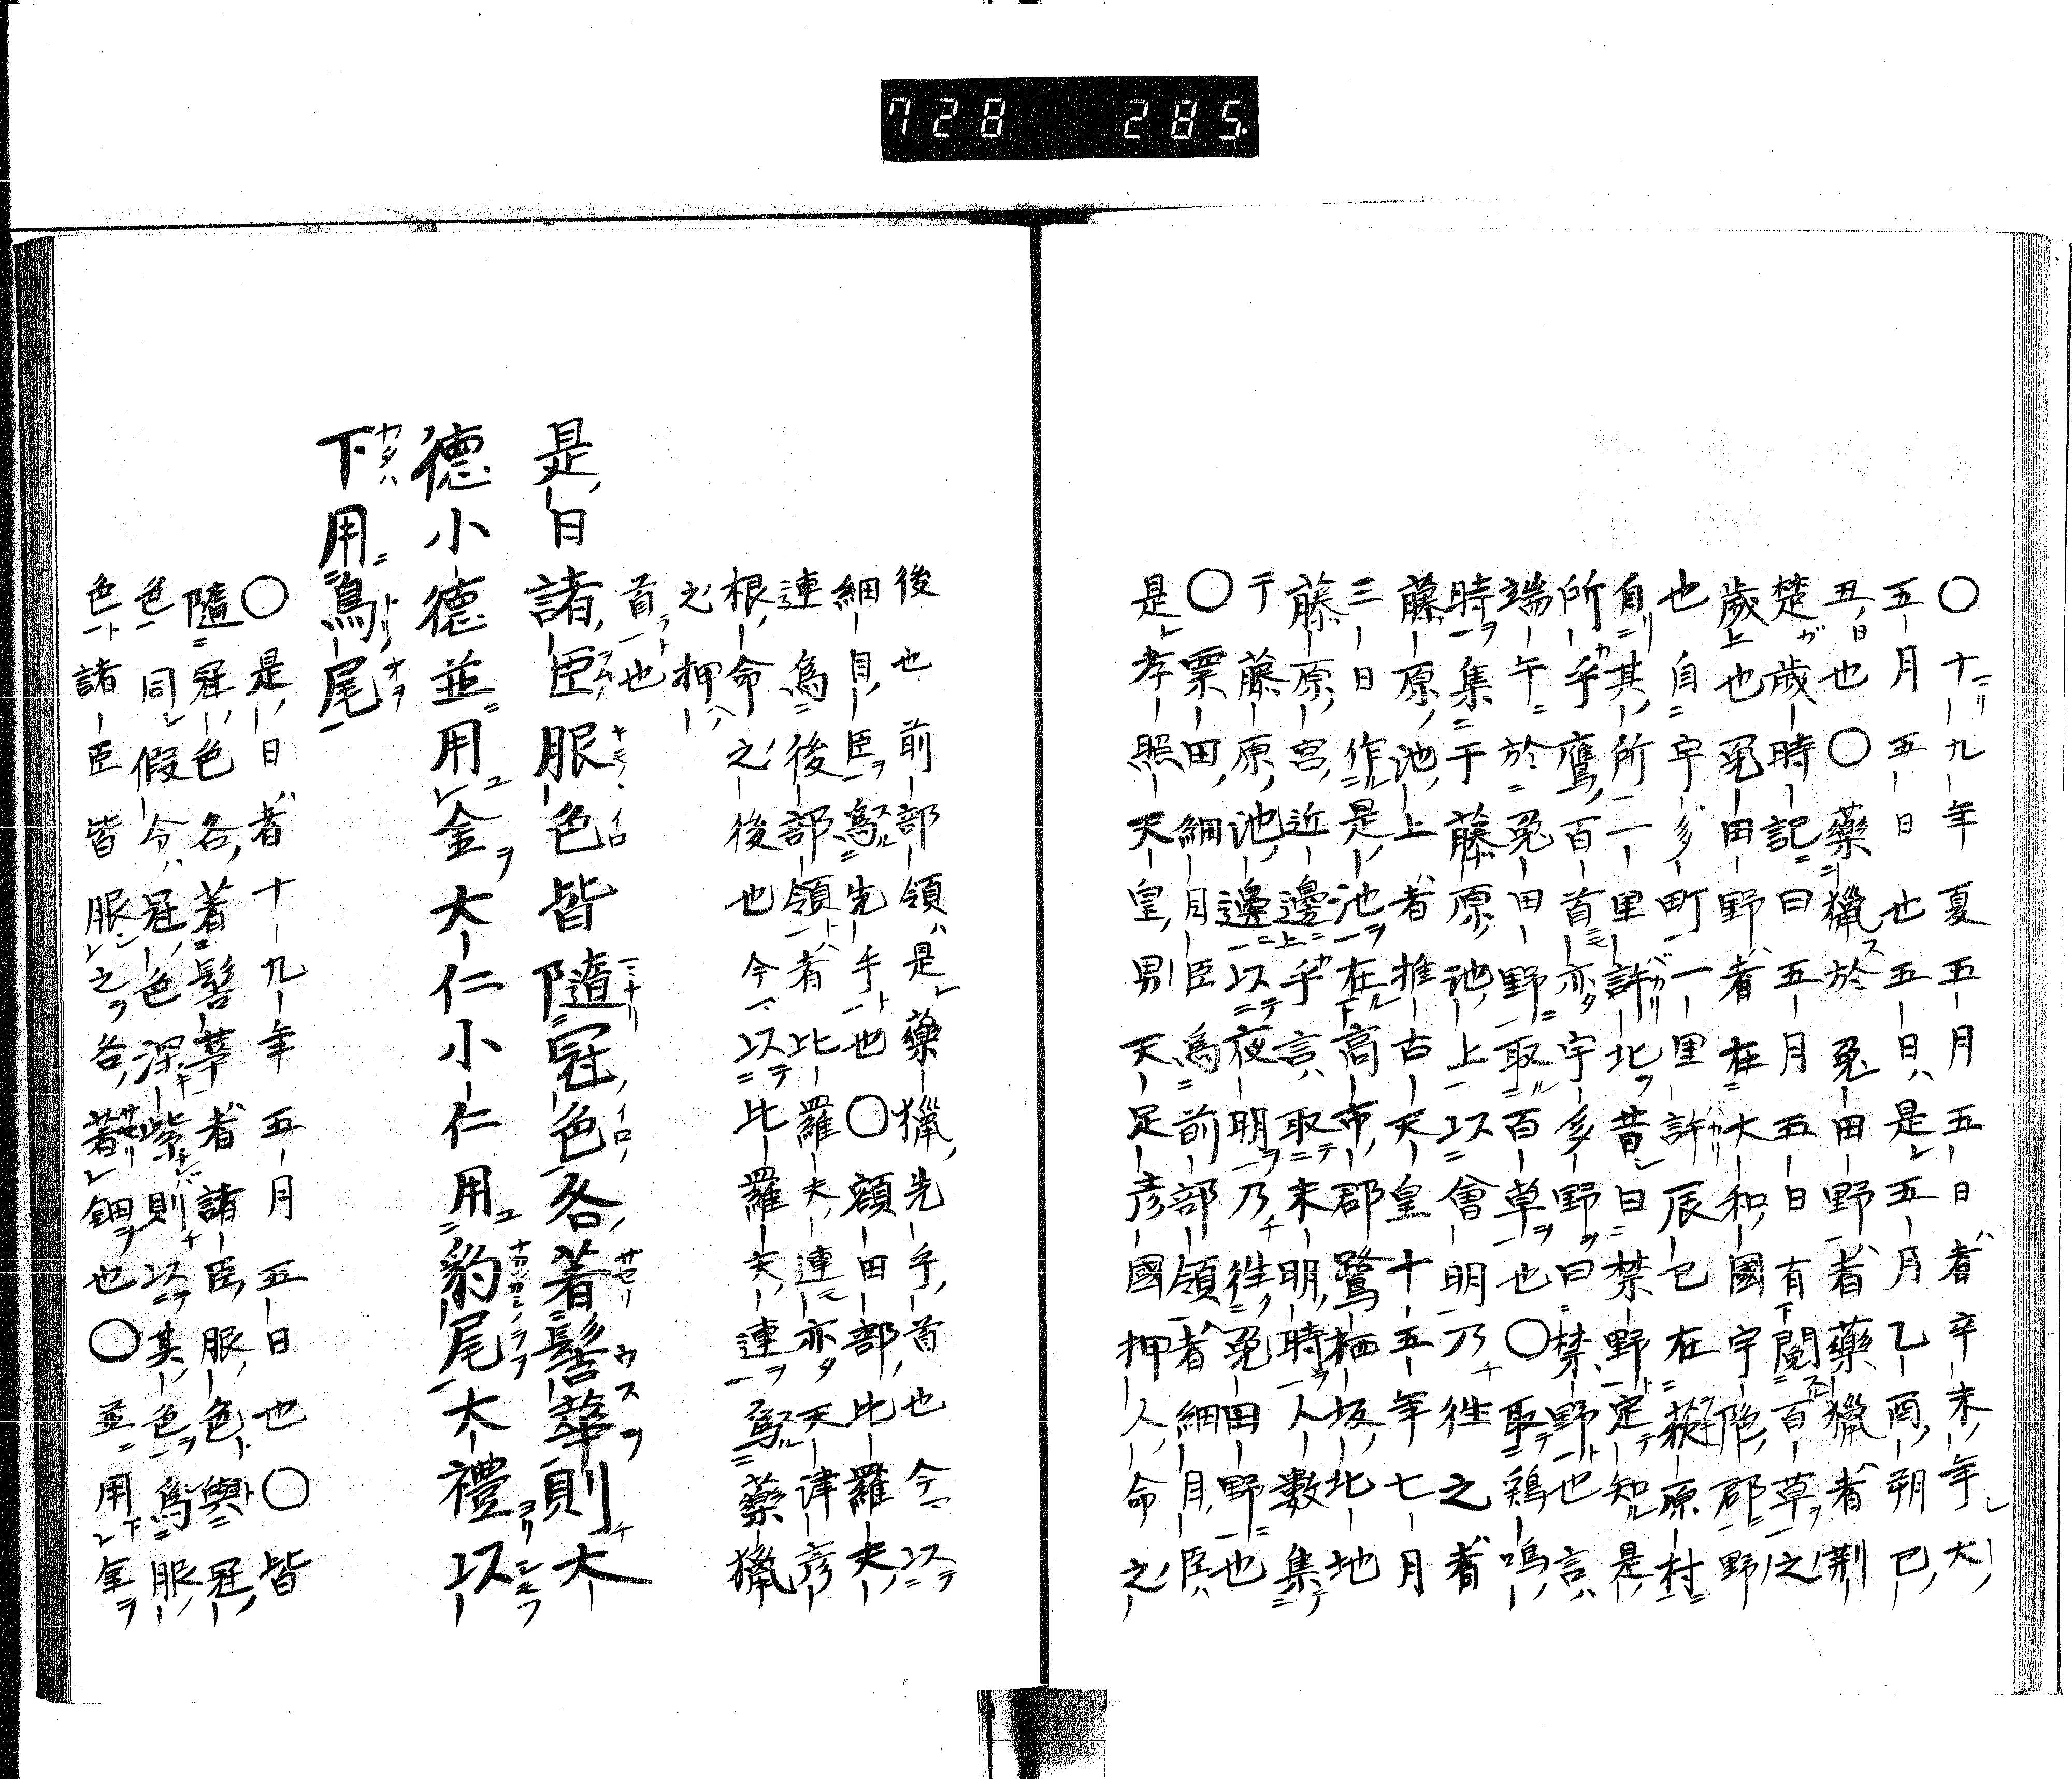 728 285
〇十九年夏五月五日者辛未年大
五月五日也五日是五月乙酉朔巳
丑日也〇藥獵於兎田野者藥獵者荊
楚歳時記曰五月五日有鬪百草之
歳也兎田野者在大和國宇陁郡野
也自宇多町一里許辰巳在萩原村
自其所二里許北昔日禁野定知是
所乎鷹百首亦宇多野曰禁野也言
端午於兎田野取百草也〇取鶏鳴
時集于藤原池上以會明乃徃之者
藤原池上者推古天皇十五年七月
三日作是池在高市郡鷺栖坂北地
藤原宮近邊乎言取未明時人數集
于藤原池邊以夜明乃徃兎田野也
〇粟田細目臣為前部領者細目臣
是孝照天皇男天足彦國押人命之
後也前部領是藥獵先手首也今以
細目臣為先手也〇額田部比羅夫
連為後部領者比羅夫連亦天津彦
根命之後也今以比羅夫連為藥獵
之押
首也
是日諸臣服色皆隨冠色各著髻華則大
德小德並用金大仁小仁用豹尾大禮以
下用鳥尾
〇是日者十九年五月五日也〇皆
隨冠色各著髻華者諸臣服色與冠
色同假令冠色深紫則以其色為服
色諸臣皆服之各著鈿也〇並用金